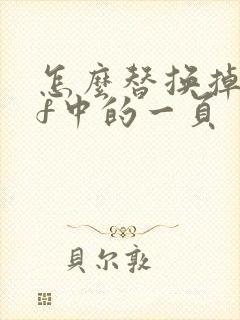 怎麼替換掉
f中的一頁
貝尔敦